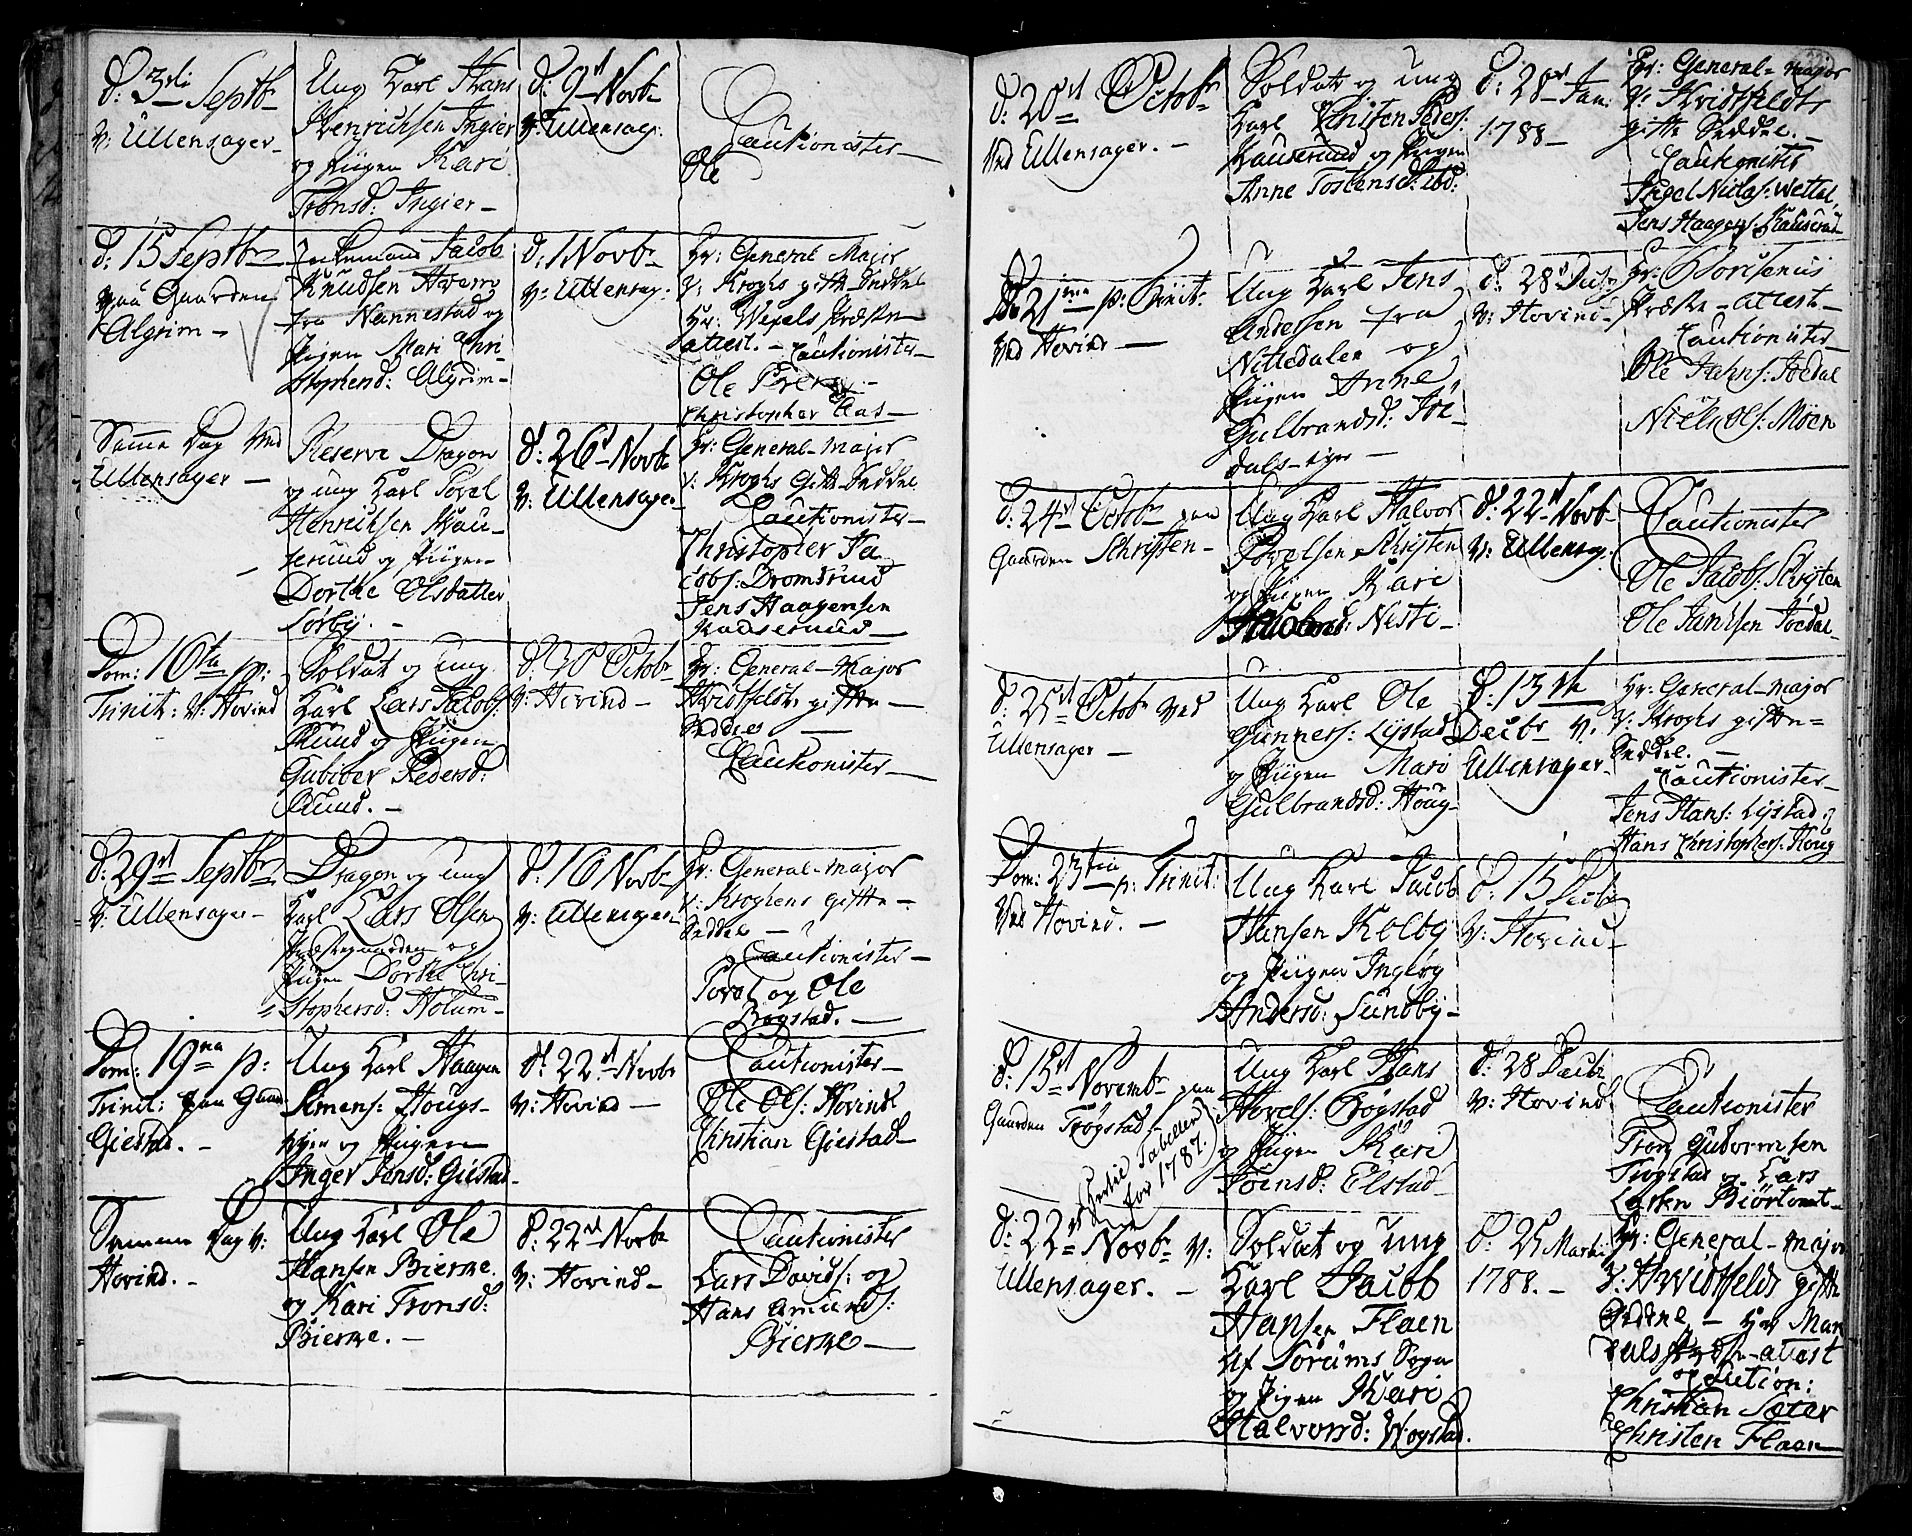 d: 3die Septbr
v: Ullensager
Ung Karl Hans
Henrichsen Ingier
og Piigen Kari
Tronsd: Ingier
d: 9de Novbr
v: Ullensag:
Cautionister
Ole
d: 15 Septbr
paa Gaarden
Algrim
Jacob
Knudsen
fra Nannestad og
Piigen Mari Chri-
stophersd: Algrim
d: 1 Novbr
v: Ullensag:
Hr: General Major
v: Kroghs gifte Seddel
Hr: Wexels Præste
attest. Cautionister
Ole
Christopher Aas
Samme Dag ved
Ullensager
Reserve Dragon
og ung Karl Povel
Henrichsen Kau-
serud og Piigen
Dorthe Olsdatter
Sørby.
d: 26de Novbr
v: Ullensager
Hr: General-Major
v: Kroghs Gifte Seddel
Cautionister
Christopher Ja-
cobs: Dromtrud
Jens Haagensen
Kauserud
Dom: 16ta p:
Trinit: v: Hovind
Soldat og ung
Karl Lars Jacobs:
Ruud og Piigen
Gubiør Pedersd:
Ruud.
d: 20 Octobr
v: Hovind
Hr: General-Major
Hvidtfeldts gifte-
Seddel
Cautionister
d: 29de Septbr
v: Ullensager
Dragon og ung
Karl Lars Olsen
Præstegaarden og
Piigen Dorthe Chri-
stophersd: Holum
d: 16 Novbr
v: Ullensager
Hr: General-Major
v: Kroghens gifte-
Seddel
Cautionister
Povel og Ole
Bogstad.
Dom: 19na p:
Trinit: paa Gaard
Giestad.
Ung Karl Haagen
Simens: Hougs-
eyen og Piigen
Inger Jensd: Giestad
d: 22de Novbr
v: Hovind
Cautionister
Ole Ols: Hovind
Christian Giestad
Samme Dag v:
Hovind.
Ung Karl Ole
Hansen Bierke
og Kari Tronsd:
Bierke.
d: 22de Novbr
v: Hovind
Cautionister
Lars Davids: og
Hans Amunds:
Bierke
d: 20de Octobr
ved Ullensager.
Soldat og ung
Karl Christen Peders:
Kauserud og Piigen
Anne Tostensd: ibd:
d: 28de Jan:
1788
Hr: General-Major
v: Hvidtfeldts
gifte Seddel.
Cautionister
Engel Niclas: Wettal
Jens Haagens: Kauserud
D: 21ma p: Trinit:
ved Hovind
Ung Karl Jens
Andersen fra
Nittedalen og
Piigen Anne
Gulbrandsd: Joe-
dals-eyer
d: 28de Decbr
v: Hovind
Hr: Borcsenius
Præste-attest
Cautionister
Ole Jahns: Joedal
Niels Ols: Moen
d: 24de Octobr paa
Gaarden Schriften
Ung Karl Halvor
Povelsen Schriften
og Piigen Kari
Nesti
d: 22de Novbr
v: Ullensag:
Cautionister
Ole Jacobs: Schriften
Ole Jandsen Joedal
d: 25de Octobr ved
Ullensager
Ung Karl Ole
Gunners: Lystad
og Piigen Mari
Gulbrandsd: Houg
d: 13de
Decbr v:
Ullensager
Hr: General-Major
v: Kroghs gifte-
Seddel.
Cautionister
Jens Hans: Lystad og
Hans Christophers: Houg
Dom: 23tia p: Trinit:
ved Hovind.
Ung Karl Jacob
Hansen Kolby
og Piigen Ingebrg
Andersd: Sundby
d: 15 Decbr
v: Hovind
d: 15de Novembr paa
Gaarden Trøgstad
Tabellen
for 1787.
Ung Karl Hans
Povels: Bogstad
og Piigen Kari
Joensd: Elstad
d: 28 Decbr
v: Hovind
Cautionister
Tron Gudbormsen
Trogstad og Lars
Larsen Biørtomt
d: 22de Novbr v:
Ullensager.
Soldat og ung
Karl Jacob
Hansen Flaen
af Sørums Sogn
og Piigen Kari
Halvorsd: Wogstad.
d: 25 Marti
1788.
Hr: General-Major
v: Hvidtfelds gifte
Seddel Hr Man
dals Præste-attest
og Cution:
Christian Sæter
Christen Flaen